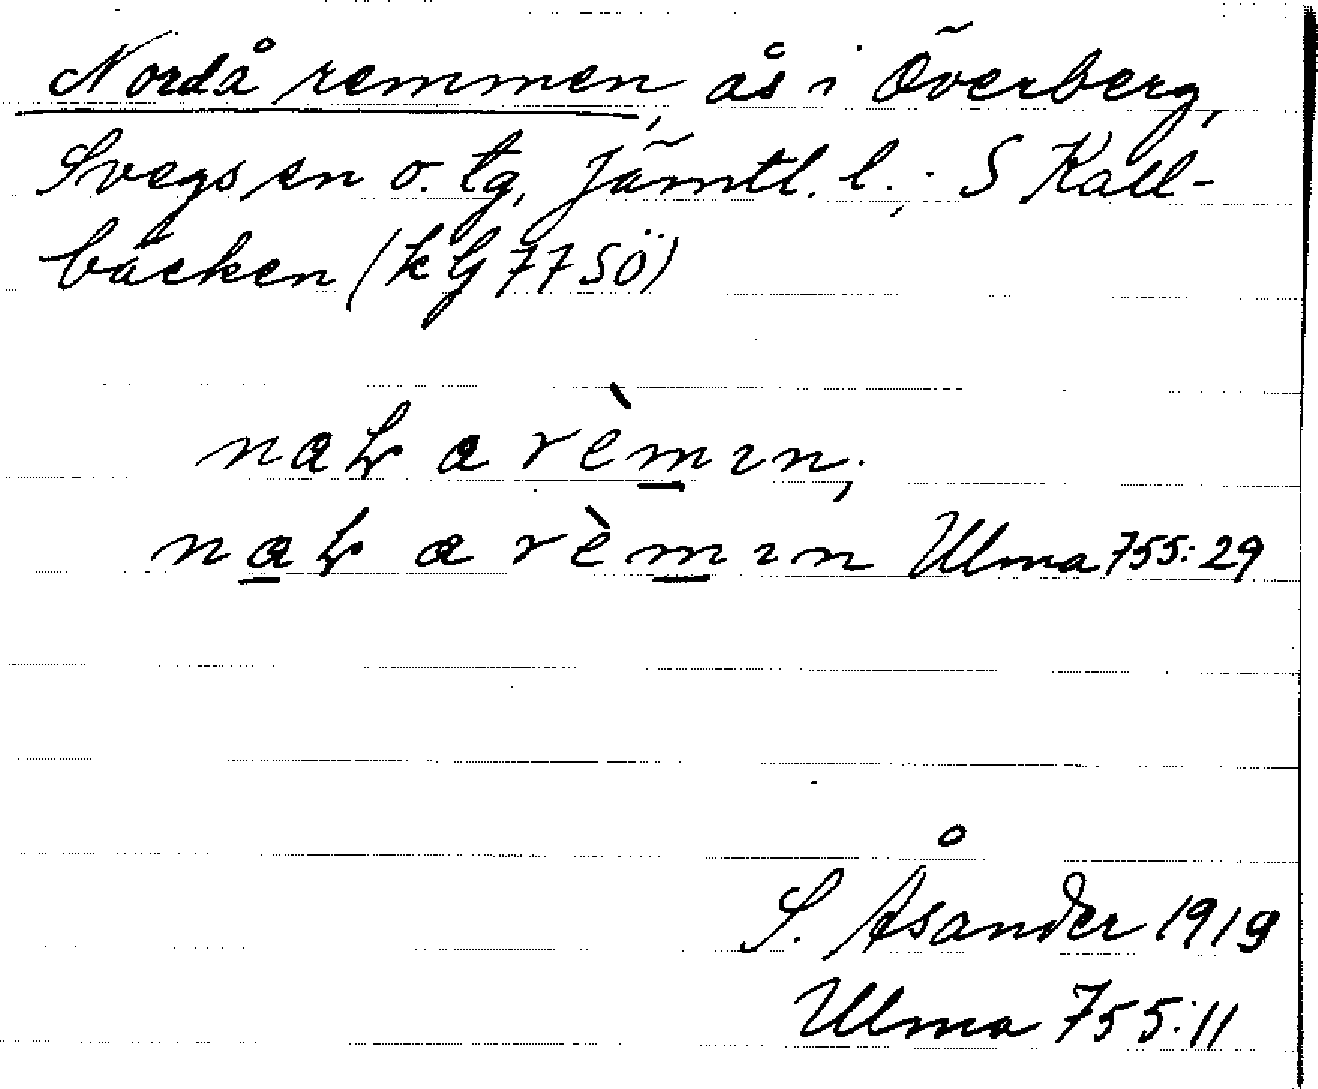 Nordå remmen, ås i Överberg,
Svegs sn o. tg, Jämtl. l.; S Kall-
bäcken (kG 77 SÖ)
naƚ a rèmın;
naƚ a rèmın Ulma 755:29
S. Åsander 1919
Ulma 755:11